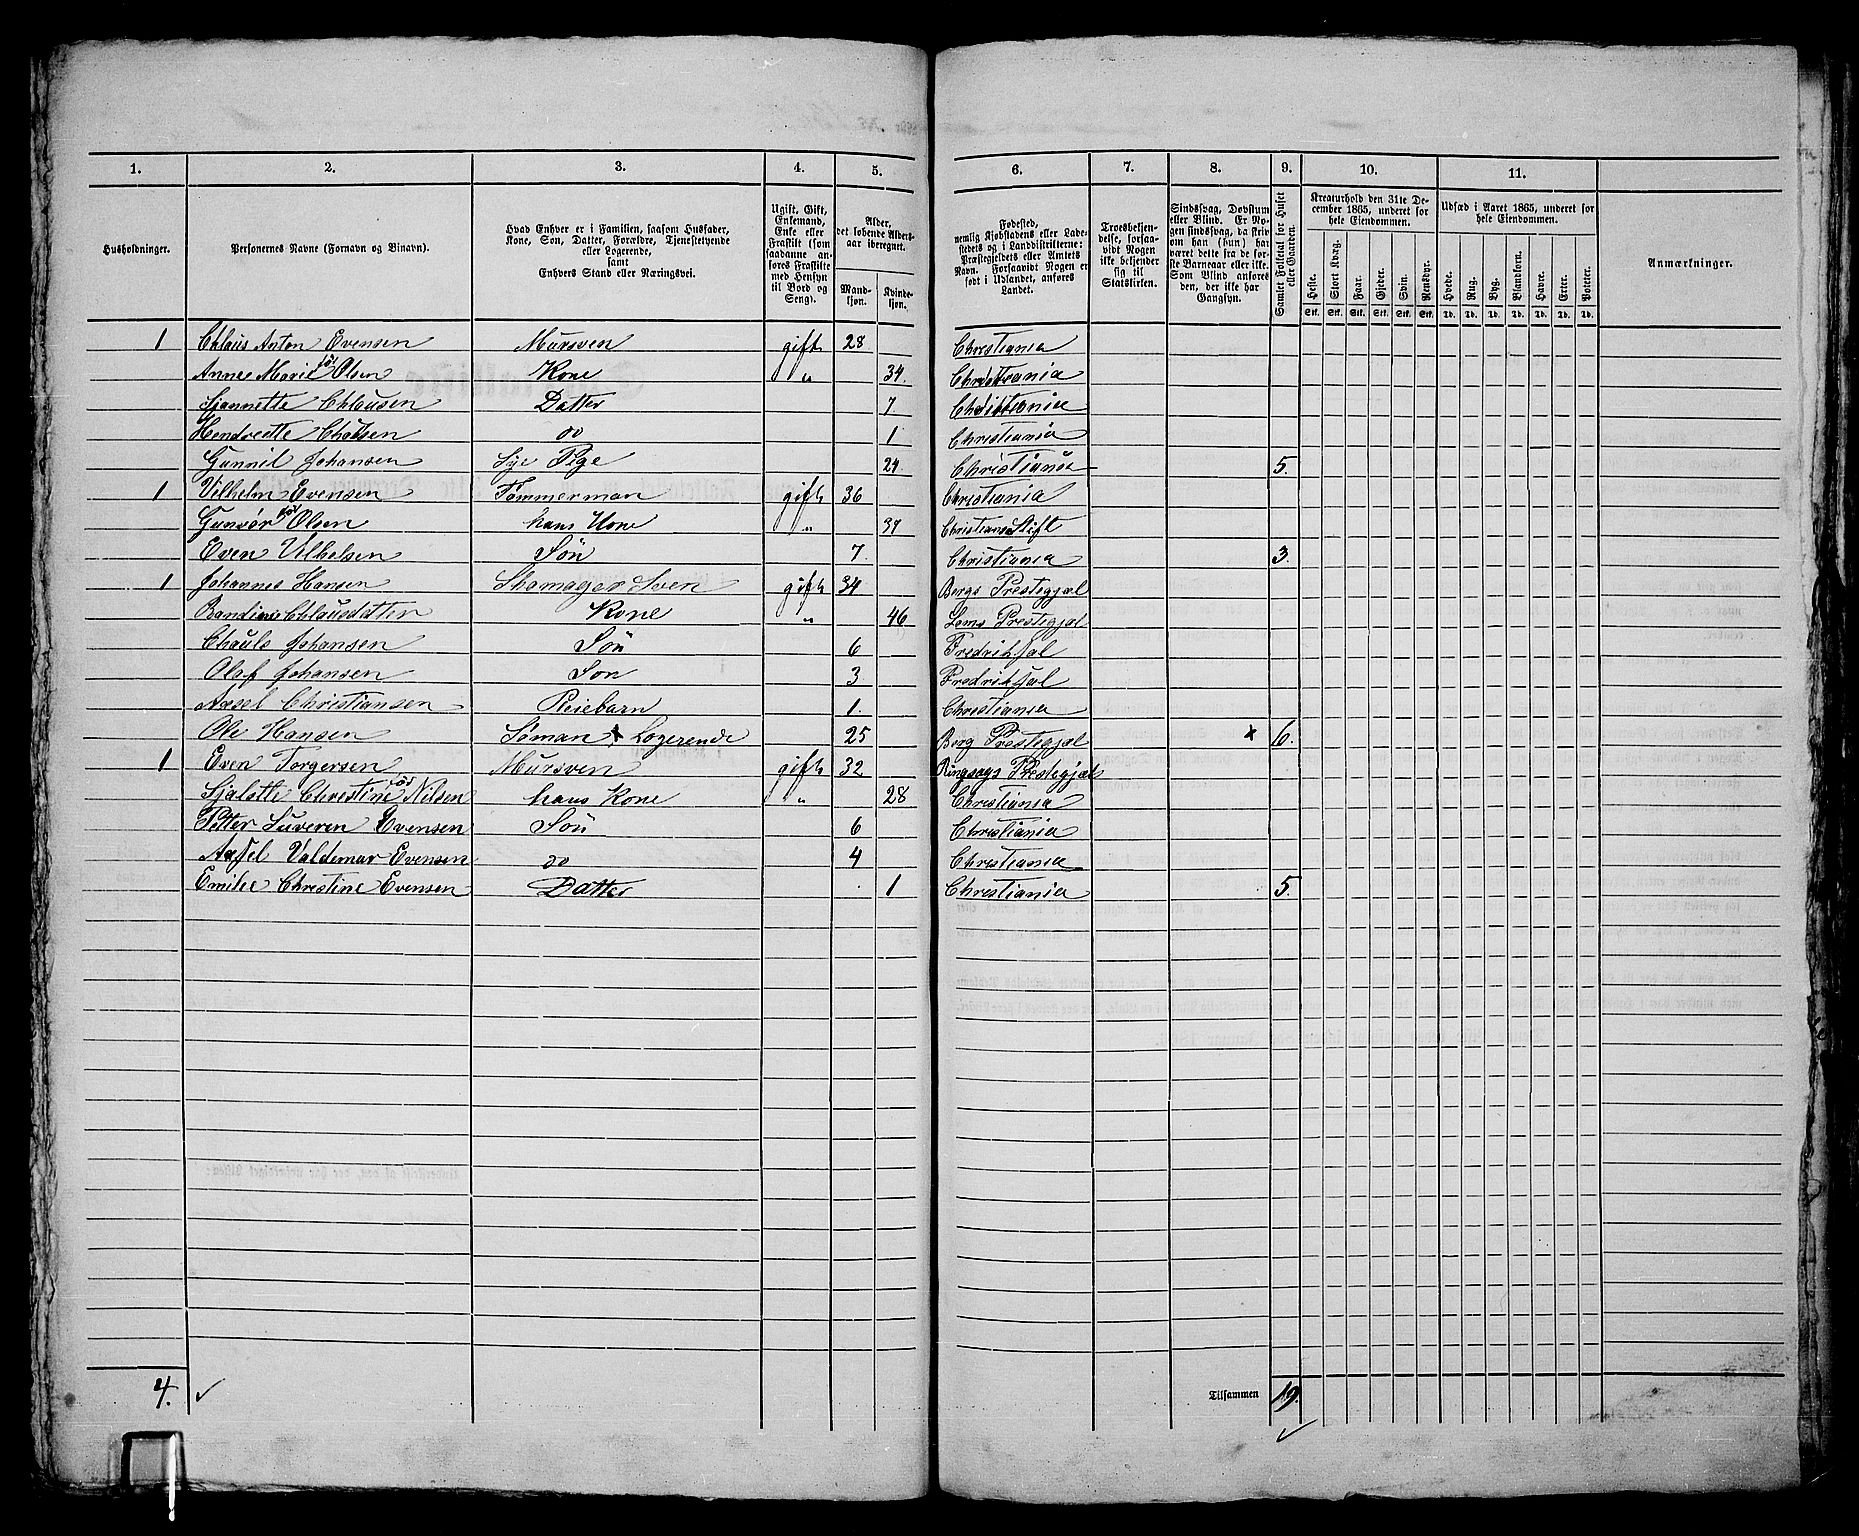 1. 2. 3. 4. 5. 6. 7. 8. 9. 10. 11.
Husholdninger.
Personernes Navne (Fornavn og Binavn).
Hvad Enhver er i Familien, saasom Husfader,
Kone, Søn, Datter, Forældre, Tjenestetyende
eller Logerende,
samt
Enhvers Stand eller Næringsvei.
Ugift, Gift,
Enkemand,
Enke eller
Fraskilt (som
saadanne an-
føres Fraskilte
med Hensyn
til Bord og
Seng).
Alder,
det løbende Alders-
aar iberegnet.
Mand-
kjøn.
Kvinde-
kjøn.
Fødested,
nemlig Kjøbstadens eller Lade-
stedets og i Landdistrikterne:
Præstegjeldets eller Amtets
Navn. Forsaavidt Nogen er
født i Udlandet, anføres
Landet.
Troesbekjen-
delse, forsaa-
vidt Nogen
ikke bekjender
sig til
Statskirken.
Sindssvag, Døvstum
eller Blind. Er No-
gen sindssvag, da skriv
om han (hun) har
været dette fra de før-
ste Barneaar eller ikke.
Som Blind anføres
den, der ikke har
Gangsyn.
Samlet Folketal for Huset
eller Gaarden.
Kreaturhold den 31te De-
cember 1865, underet for
hele Eiendommen.
Heste. Stort Kvæg. Faar. Gjeder. Svin. Rensdyr.
Stk. Stk. Stk. Stk. Stk. Stk.
Udsæd i Aaret 1865, underet for
hele Eiendommen.
Hvede. Rug. Byg. Blandkorn. Havre. Erter. Poteter.
Td. Td. Td. Td. Td. Td. Td.
Anmærkninger.
1 Chlaus Anton Evensen Mursven gift 28 Christiania
Anne Marie föt Olsen Kone " 34. Christiania
Sjannette Chlausen Datter 7 Christiania
Hendreette Chausen do 1 Christiania
Gunnil Johansen Sye Pige 24 Christiania 5.
1 Vilhelm Evensen Tømmerman gift 36 Christiania
Gunnør föt Olsen hans Kone " 37 Christiania Stift
Even Vilhelsen Søn 7. Christiania 3.
1 Johannes Hansen Skomager Sven gift 34 Bergs Prestegjæl
Chlausdatter Kone " 46 Loms Prestegjæl
Chauls Johansen Søn 6 Fredrikhal
Olaf Johansen Søn 3 Fredrikhal
Axsel Christiansen Pleiebarn 1. Christiania
Ole Hansen Søman Logerende 25 Berg Prestegjæl x 6.
1 Even Torgersen Mursven gift 32 Ringsags Prestegjæl
Sjalotte Christine föt Nilsen hans Kone " 28 Christiania
Petter Suveren Evensen Søn 6 Christiania
Axsel Valdemar Evensen do 4 Christiania
Emilie Christine Evensen Datter 1 Christiania 5.
4. Tilsammen 19.